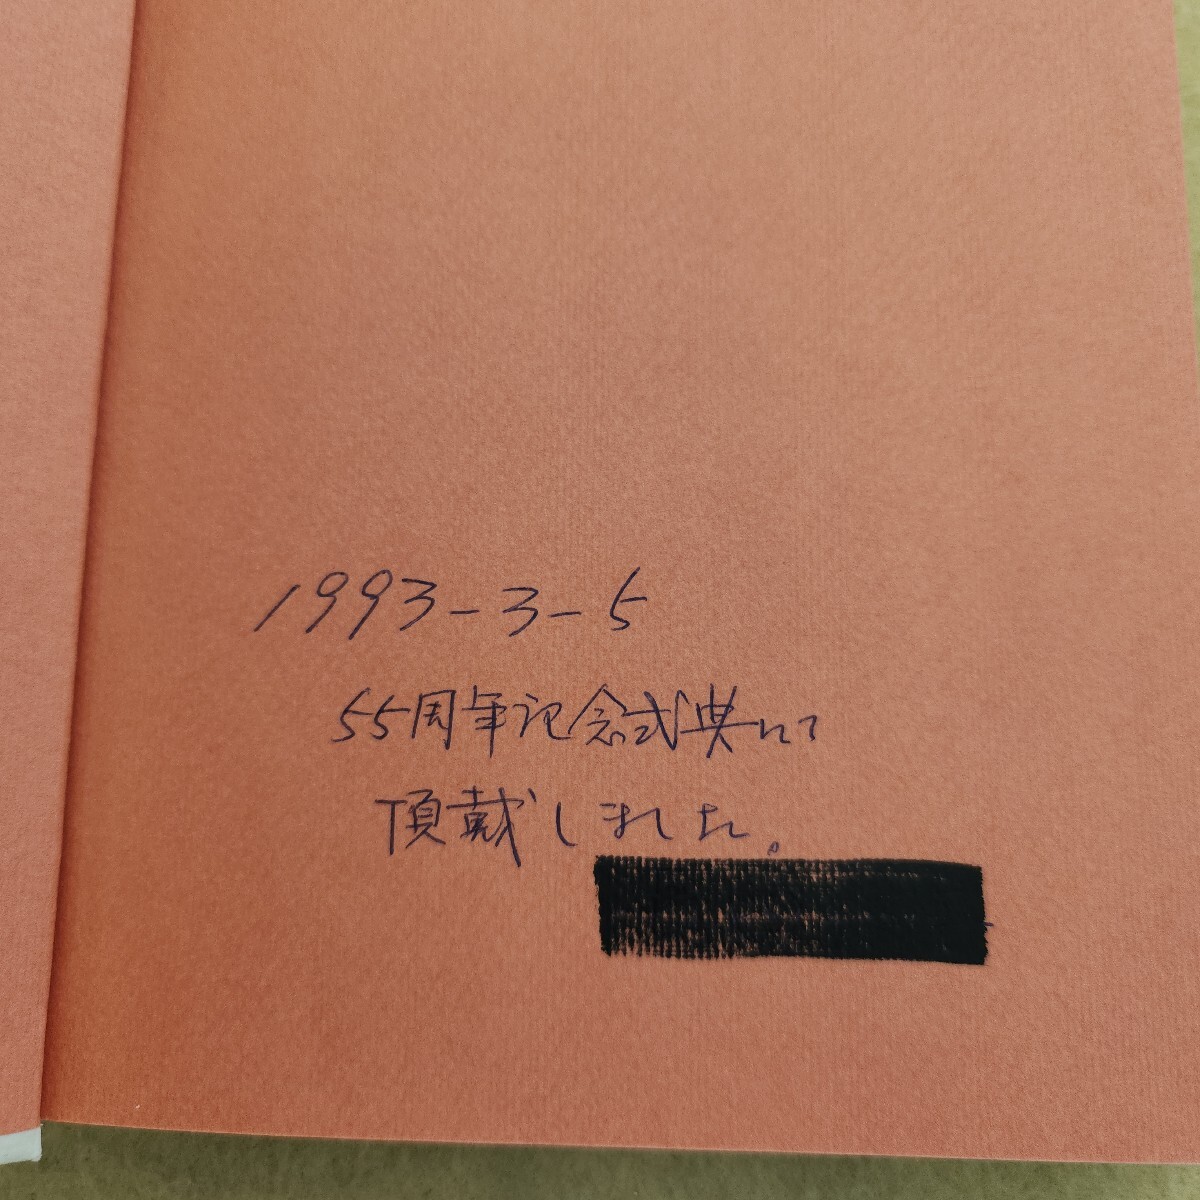 1993-3-5
55周年記念式典にて
頂戴しました。